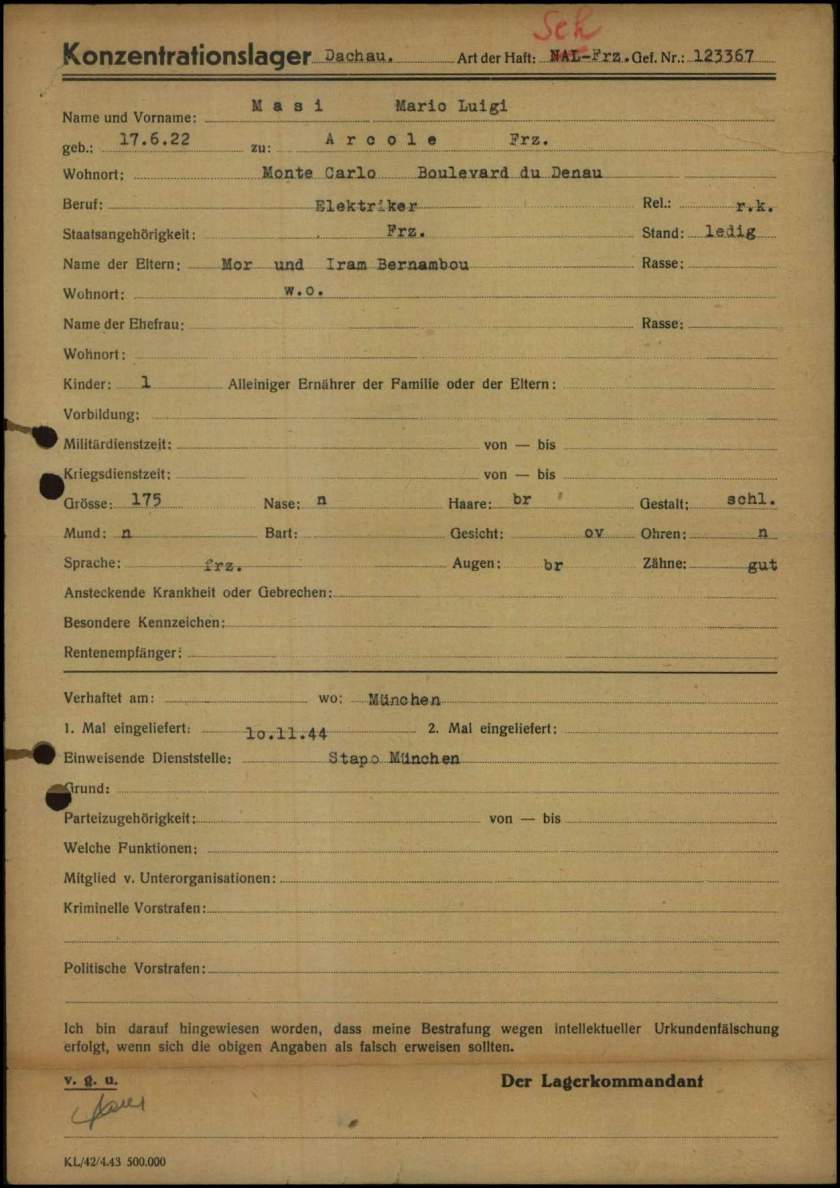 Sch
Konzentrationslager Dachau. Art der Haft: NAL-Frz. Gef. Nr.: 123367
Name und Vorname: M a s i Mario Luigi
geb.: 17.6.22 zu: A r c o l e Frz.
Wohnort: Monte Carlo Boulevard du Denau
Beruf: Elektriker Rel.: r.k.
Staatsangehörigkeit: Frz. Stand: ledig
Name der Eltern: Mor und Iram Bernambou Rasse:
Wohnort: w.o.
Name der Ehefrau: Rasse:
Wohnort:
Kinder: 1 Alleiniger Ernährer der Familie oder der Eltern:
Vorbildung:
Militärdienstzeit: von — bis
Kriegsdienstzeit: von — bis
Grösse: 175 Nase: n Haare: br Gestalt: schl.
Mund: n Bart: Gesicht: ov Ohren: n
Sprache: frz. Augen: br Zähne: gut
Ansteckende Krankheit oder Gebrechen:
Besondere Kennzeichen:
Rentenempfänger:
Verhaftet am: wo: München
1. Mal eingeliefert: 10.11.44 2. Mal eingeliefert:
Einweisende Dienststelle: Stapo München
Grund:
Parteizugehörigkeit: von — bis
Welche Funktionen:
Mitglied v. Unterorganisationen:
Kriminelle Vorstrafen:
Politische Vorstrafen:
Ich bin darauf hingewiesen worden, dass meine Bestrafung wegen intellektueller Urkundenfälschung
erfolgt, wenn sich die obigen Angaben als falsch erweisen sollten.
v. g. u. Der Lagerkommandant
KL/42/4.43 500.000